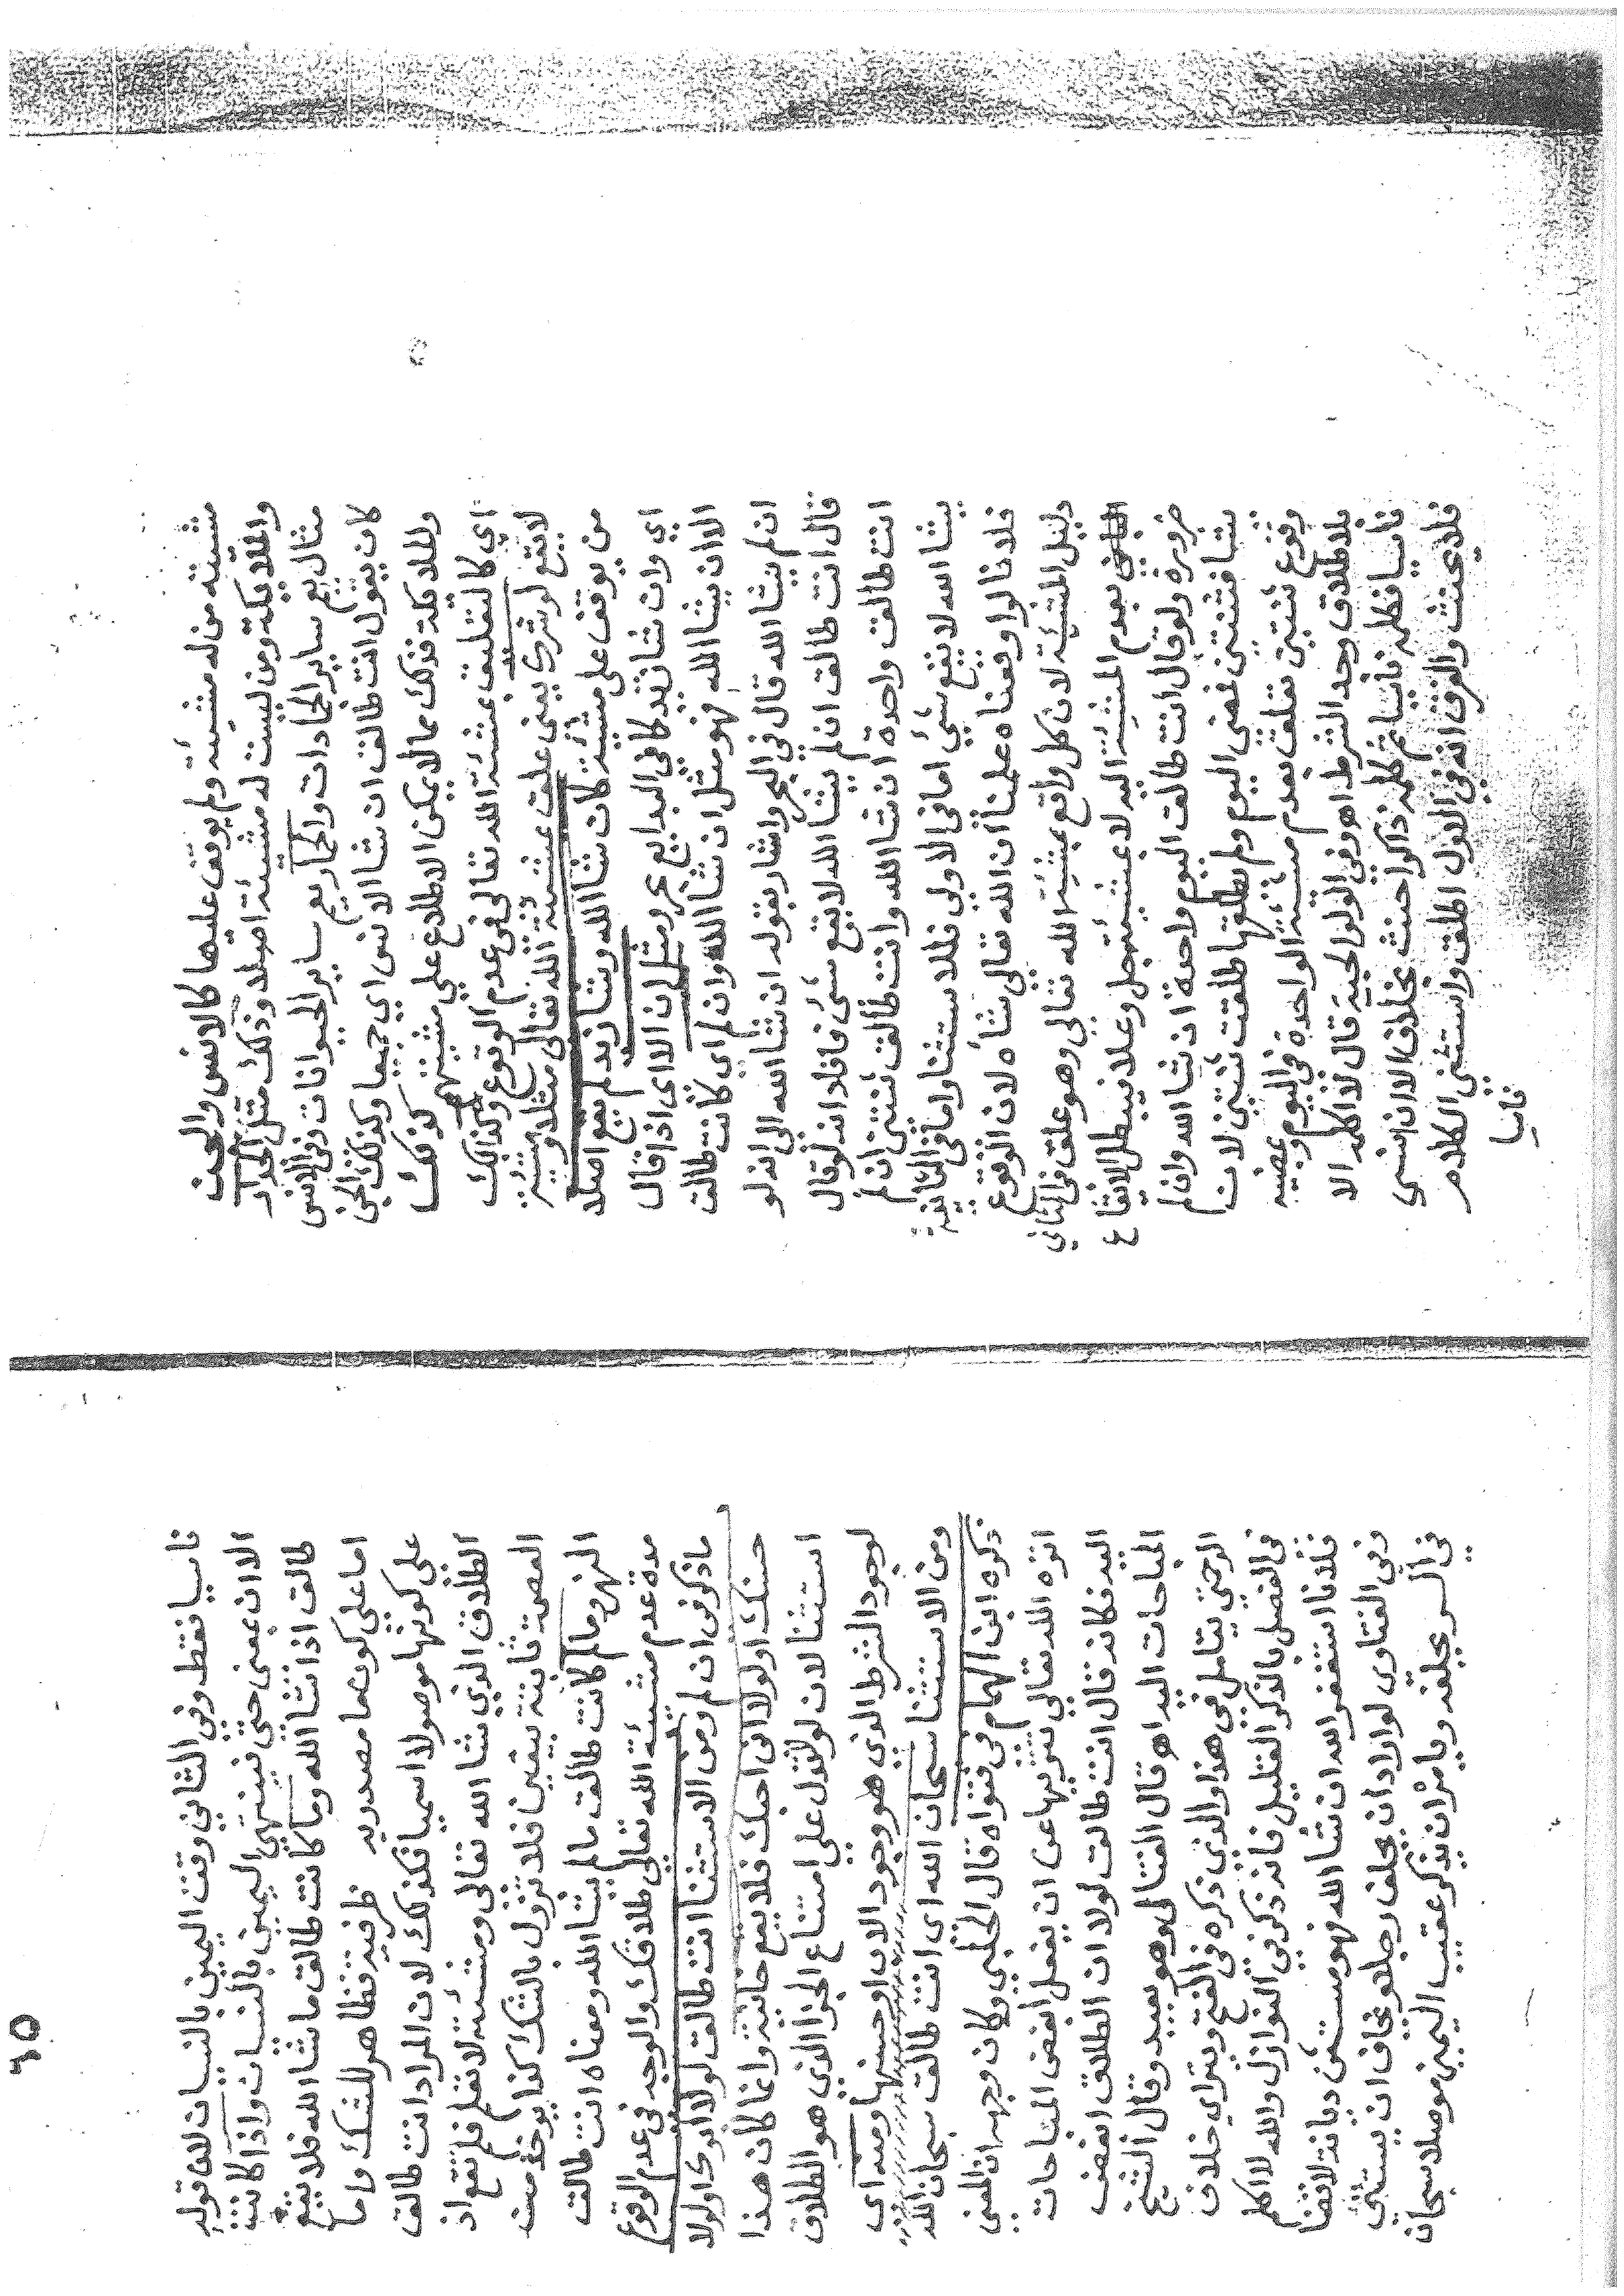 مشيته من له مشيئة ولم يوقف عليها كالانس والجن
والملايكة ومن ليست له مشيئة اصلا وذلك مثل الجدار
مثال يعم ساير الجمادات والحمار يعم ساير الحيوانات وفي الانس
كان يقول انت طالق ان شا الانس اي جميعا وكذلك الجن
والملايكة فذلك مما لا يمكن الاطلاع على مشيتهم كذلك
اي كالتعليق بمشئة الله تعالى في عدم الوقوع وكذلك
لا يقع لو شرك يعني علقت بمشية الله تعالى مثلا ومشيئة
من يوقف على مشئية كان شا الله وشا زيد لم يقع اصلا
اي وان شا زيد كما في البدايع بحر ومثل ان الا اي اذا قال
الا ان يشا الله فهو مثل ان شا الله وان لم اي كانت طالق
ان لم يشا الله قال في البحر واشار بقوله ان شا الله الى انه لو
قال انت طالق ان لم يشا الله لا يقع شئ فافاد انه لو قال
انت طالق واحدة ان شا الله وانت طالق ثنتين ان لم
يشا الله لا يقع شئ اما في الاولى فللاستثنا واما في الثانية
فلانا لو اوقعناه علمنا ان الله تعالى شاه لان الوقوع
دليل المشيئة لان كل واقع بمشيئة الله تعالى وهو علق في الثاني
بعدم المشيئة اليه لا بمشيئته جل وعلا فيبطل الايقاع
ضرورة ولو قال انت طالق اليوم واحدة ان شا الله وان لم
يشا فثنتين فمضى اليوم ولم يطلقها طلقت ثنتين لان
وقوع ثنتين تعلق بعدم مشيئة الواحدة في اليوم وبمضيه
بلا طلاق وجد الشرط اهـ وفي الولوالجية قال لا اكلمه الا
ناسيا فكلمه ناسيا ثم كلمه ذاكرا حنث بخلاف الا ان انسى
فلا يحنث والفرق انه في الاول اطلق واستثنى الكلام
ناسيا
٦٥
ناسيا فقط وفي الثاني وقت اليمين بالنسيان لان قوله
الا ان بمعنى حتى فينتهي اليمين بالنسيان واذا كانت
طالق اذا شا الله وما كانت طالق ما شا الله فلا يقع
اما على كون ما مصدرية ظرفية فظاهر للشك واما
على كونها موصولا اسميا فكذلك لان المراد انت طالق
الطلاق الذي شا الله تعالى ومشيئته لا تعلم فلم تقع اذ
العصمة ثابتة بيقين فلا تزول بالشك كذا يوخذ من
النهر وما لم كانت طالق ما لم يشا الله ومعناه انت طالق
مدة عدم مشيئة الله تعالى طلاقك والوجه في عدم الوقوع
ما ذكر في ان لم ومن الاستثنا انت طالق لولا ابوك او لولا
حسنك او لولا اني احبك فلا يقع خانية وانما كان هذا
استثنا لان لولا تدل على امتناع الجزا الذي هو الطلاق
لوجود الشرط الذي هو وجود الاب او حسنها ومنه اي
ومن الاستثنا سبحان الله اي انت طالق سبحان الله
ذكره ابن الهمام في فتواه قال الحلبي وكان وجهه ان المعنى
انزه الله تعالى تنزيها عن ان يفعل ابغض المباحات
اليه فكانه قال انت طالق لولا ان الطلاق ابغض
المباحات اليه اهـ قال الفتال وهو بعيد وقال الشيخ
الرحمتي يتامل في هذا والذي ذكره في الفتح ويتراي خلاف
في الفصل بالذكر القليل فانه ذكر في النوازل والله لا اكلم
فلانا استغفر الله ان شا الله فهو مستثن ديانة لا قضا
وفي الفتاوى لو اراد ان يحلف رجلا ويخاف ان يستثني
في السر يحلفه ويامره ان يذكر عقيب اليمين موصلا سبحان